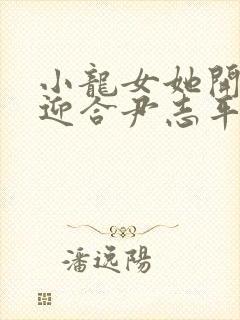 小龍女她開
迎合尹志平
潘逸陽